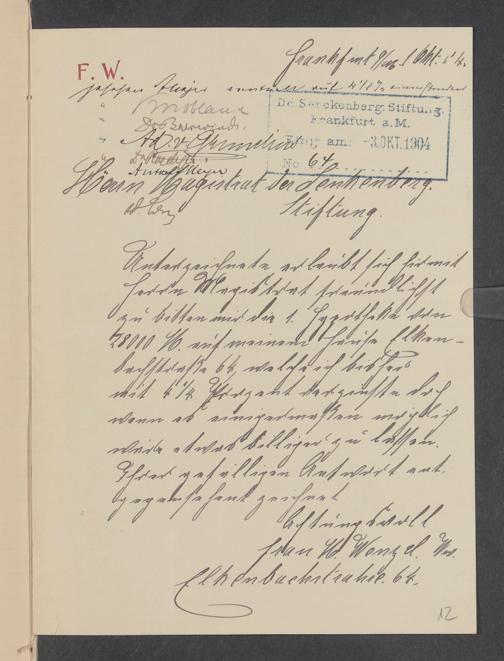 F. W.
Frankfurt a/M. 1 Okt. 04.
gesehen Meyer einverstanden auf 4 1/8 %
Dr. Senckenberg. Stiftung.
Frankfurt a. M.
Eing am: -3. OKT. 1904
No 64
Herrn Magistrat der Senkenberg.
Stiftung.
Unterzeichnete erlaubt sich hiermit
Herrn Magistrat freundlichst
zu bitten mir die 1. Hypotheke von
28000 M. auf meinem Hause Elken-
bachstraße 64, welche ich bisher
mit 4 1/4 Prozent verzinste doch
wenn es einigermaßen möglich
wäre etwas billiger zu lassen.
Ihrer gefälligen Antwort ent-
gegensehent zeichnet
Achtungsvoll
Frau W. Wenzel. Ww.
Elkenbachstraße. 64.
12